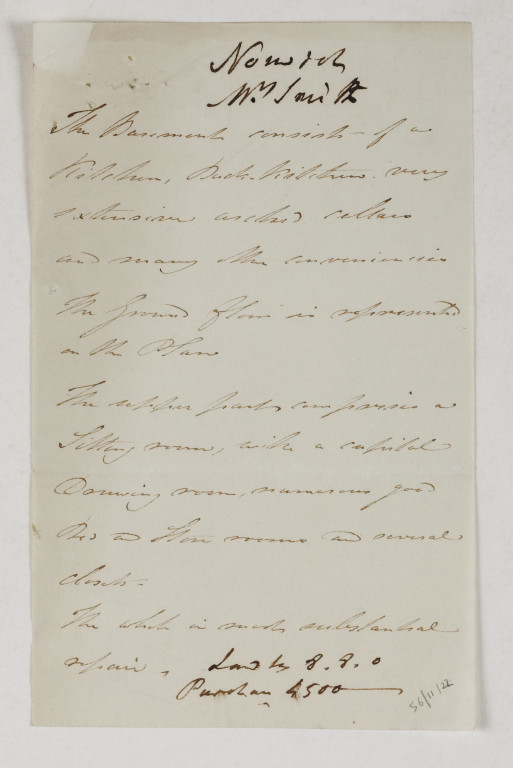 Norwich
Mrs Smith
The Basement consists of a
Kitchen, Back Kitchen very
extensive arched cellars
and many other conveniencies
The Ground floor is represented
on the Plan
The upper part comprises a
Sitting room, with a capital
Drawing room, numerous good
Bed and Store rooms and several
closets.
The whole in most substantial
repair, Land tax 8.8.0
Purchase 4500
56/11/22